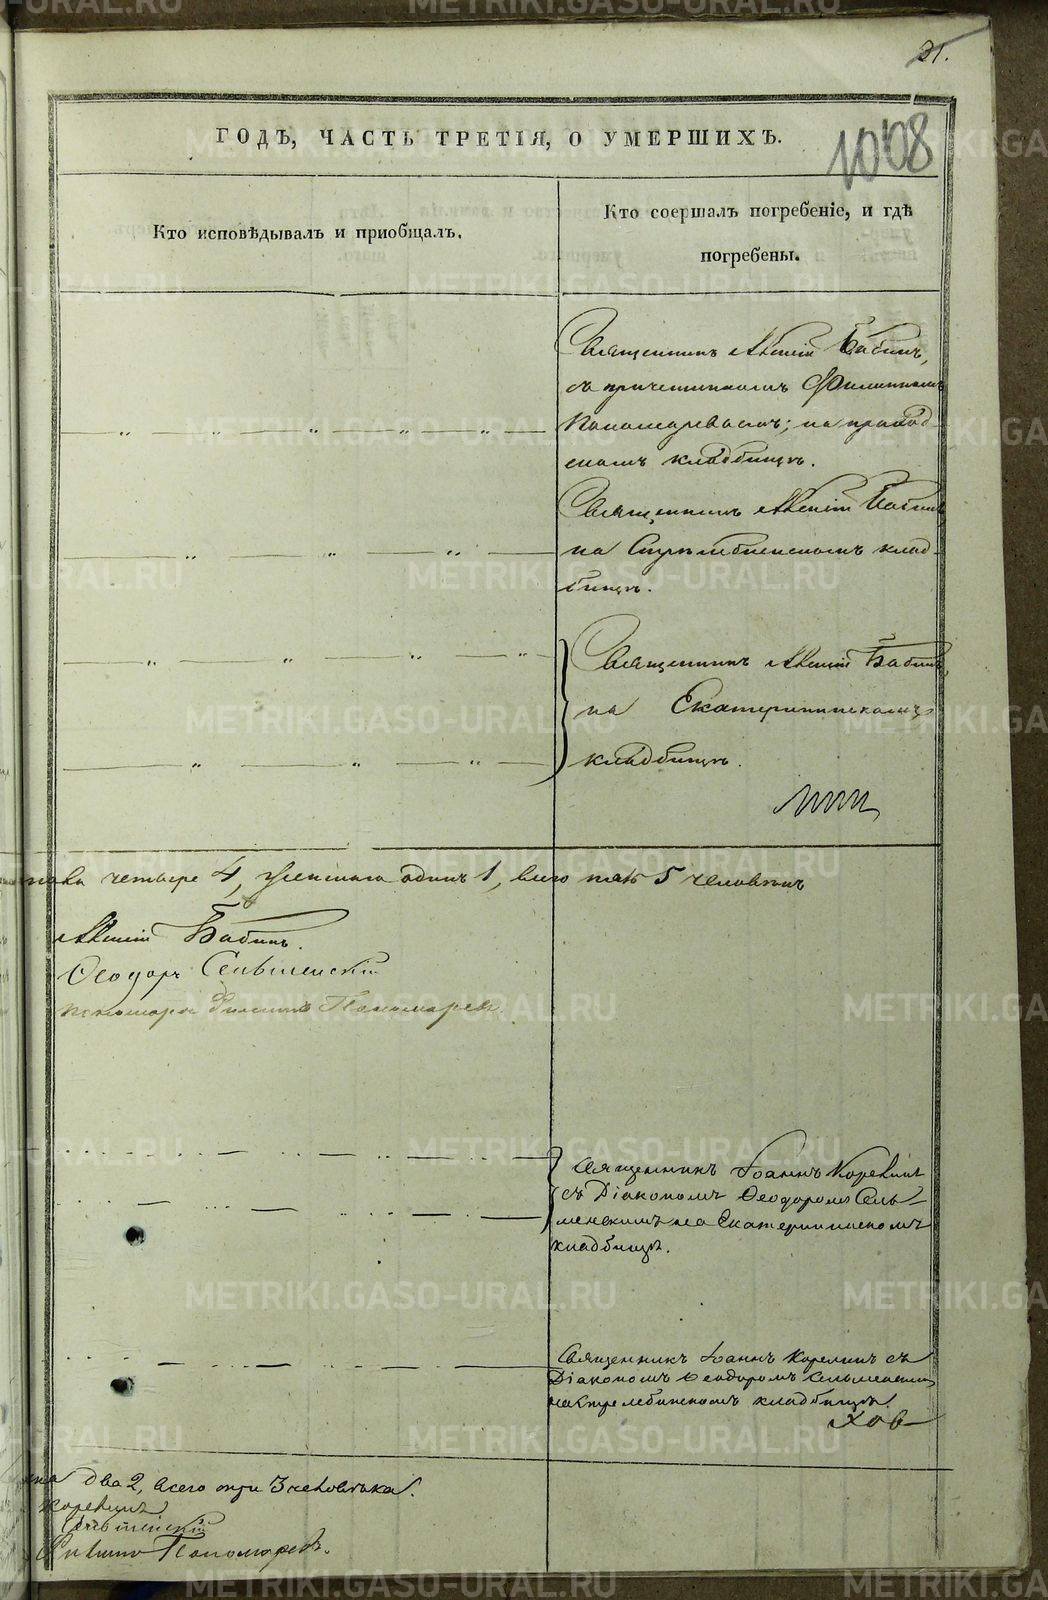 31.
1008
ГОДЪ, ЧАСТЬ ТРЕТІЯ, О УМЕРШИХЪ.
Кто исповѣдывалъ и приобщалъ.
Кто соершалъ погребеніе, и гдѣ
погребены.
Священникъ Алексій Бабинъ,
съ причетникомъ Филиппомъ
Пономаревымъ; на приход-
скомъ кладбищѣ.
Священникъ Алексій Бабинъ
на Стрѣлебненскомъ клад-
бищѣ.
Священникъ Алексій Бабинъ,
на Екатерининскомъ
кладбищѣ.
пола четверо 4, женскаго одинъ 1, всего пять 5 человѣкъ
Алексій Бабинъ.
Ѳеодоръ Сельменскій
пономарь Филиппъ Пономаревъ.
Священникъ Іоаннъ Корелинъ
съ Діакономъ Ѳеодоромъ Сель-
менскимъ на Екатерининскомъ
кладбищѣ.
Священникъ Іоаннъ Корелинъ съ
Діакономъ Ѳеодоромъ Сельменскимъ
на Стрелебинскомъ кладбищѣ.
два 2, всего три 3 человѣка.
Корелинъ
Сельменскій
Филиппъ Пономаревъ.
METRIKI.GASO-URAL.RU